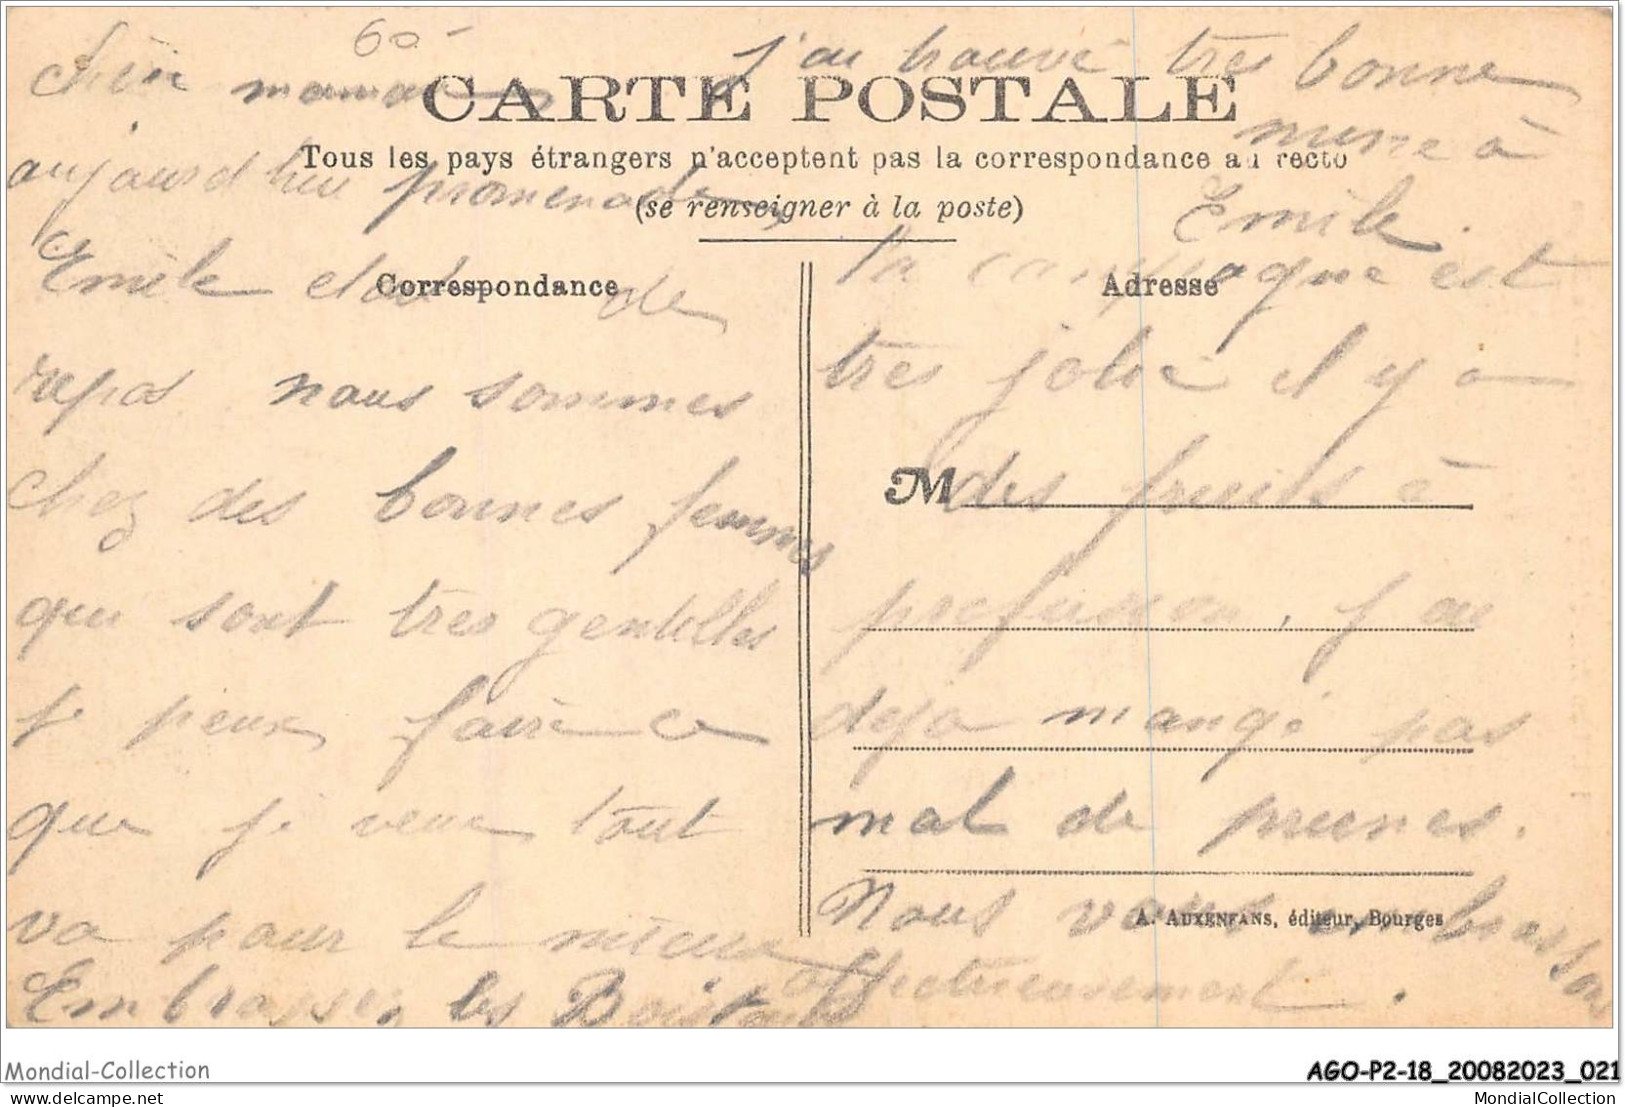 60
Chère maman
CARTE POSTALE
Tous les pays étrangers n'acceptent pas la correspondance au recto
(se renseigner à la poste)
Correspondance
aujourd'hui promenade
Emile etait de
repos nous sommes
chez des bonnes femmes
qui sont tres gentilles
je peux faire ce
que je veux tout
va pour le mieux
Embrassez les
j'ai trouvé très bonne
mine à
Emile.
Adresse
la campagne est
tres jolie il y a
M
des fruits à
profusion, j'ai
deja mangé pas
mal de prunes.
Nous vous embrassons
affectueusement.
A. AUXENFANS, éditeur, Bourges
Mondial-Collection
AGO-P2-18_20082023_021
delcampe.net
MondialCollection